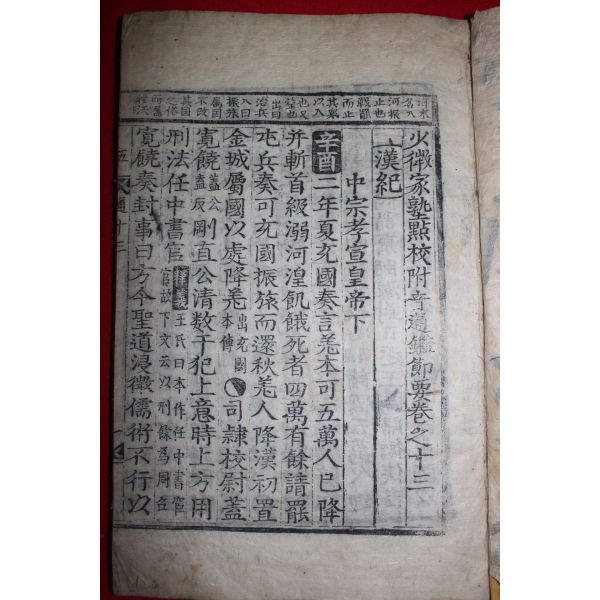 少微家塾點校附音通鑑節要卷之十三
漢紀
中宗孝宣皇帝下
辛酉二年夏充國奏言羌本可五萬人已降
幷斬首級溺河湟飢餓死者四萬有餘請罷
屯兵奏可充國振旅而還秋羌人降漢初置
金城屬國以處降羌出充國本傳司隷校尉蓋
寬饒蓋公反剛直公清數干犯上意時上方用
刑法任中書官釋義王氏曰本作任中書宦官故下文云以刑餘爲周召
寬饒奏封事曰方今聖道浸微儒術不行以